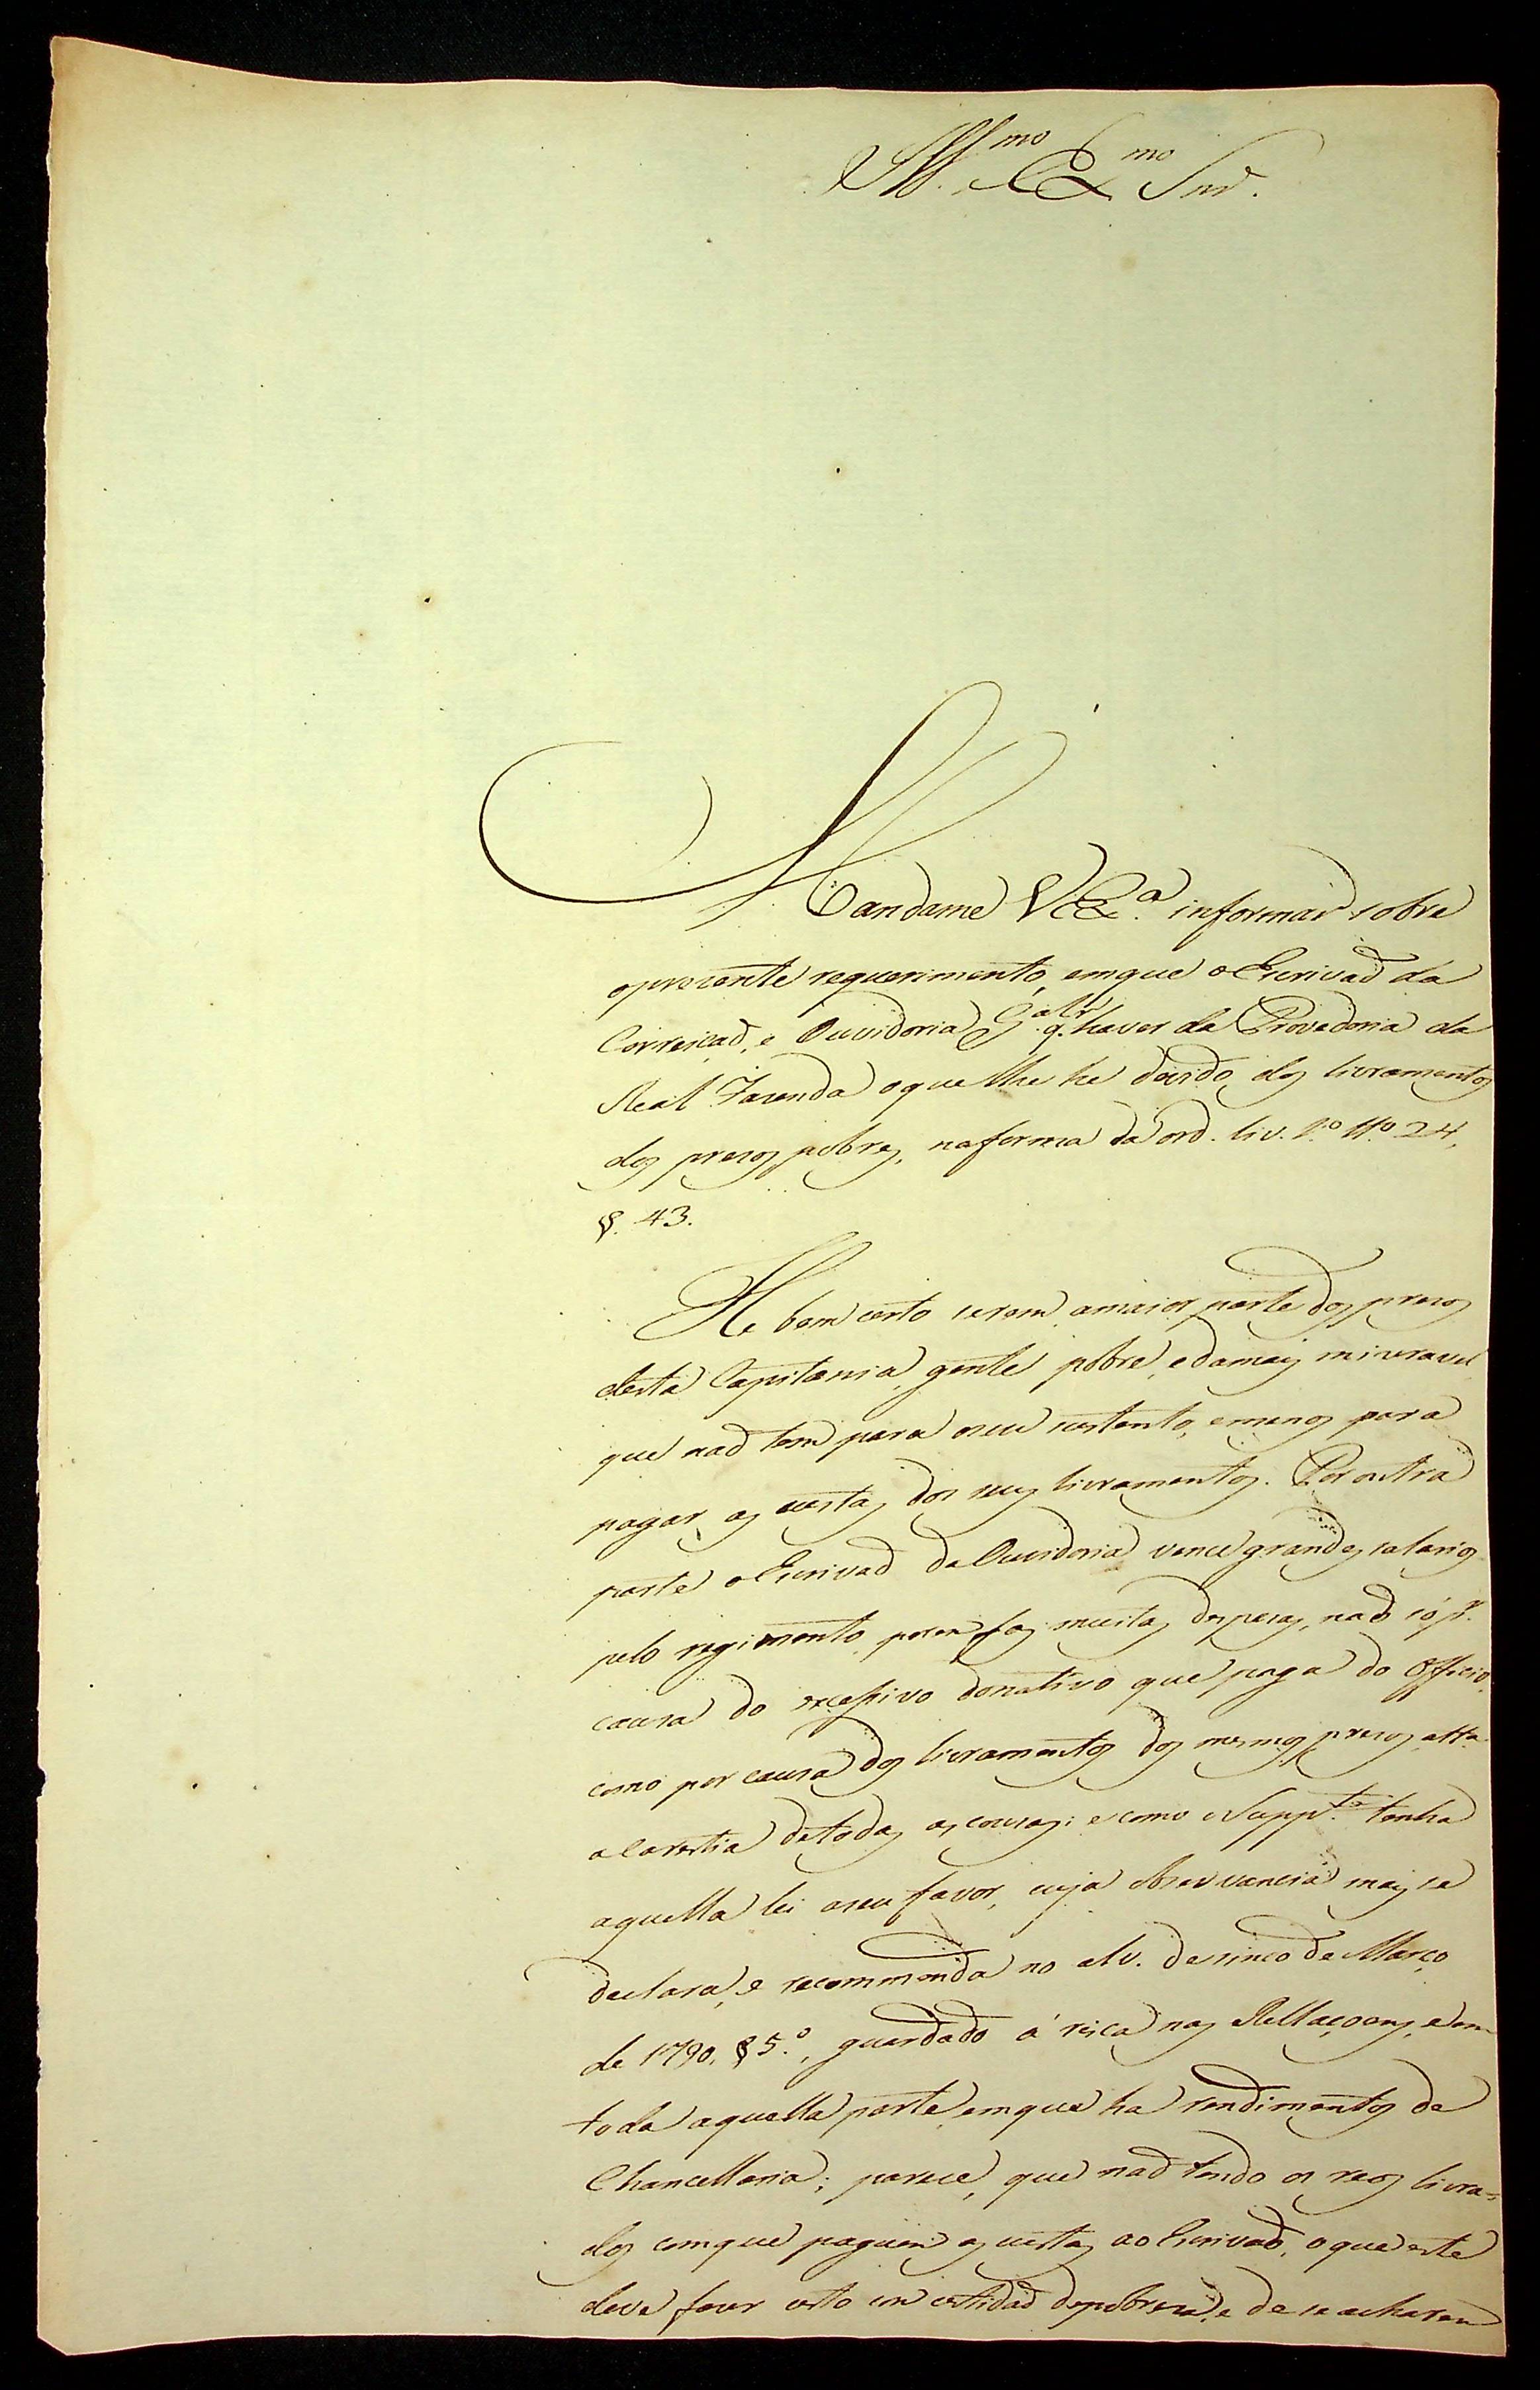 Ill.mo e Ex.mo Snr.
Mandame V. Ex.ª informar sobre
o prezente requerimento, em que o Escrivaõ da
Correiçaõ, e Ouvidoria G.al q.r haver da Provedoria da
Real Fazenda o que lhe he devido dos livramentos
dos prezos pobres, na forma da ord. liv. 1.º tt.º 24,
§. 43.
He bem certo serem a maior parte dos prezos
desta Capitania, gente pobre, e da mais mizeravel
que naõ tem para o seu sustento, e menos para
pagar as custas dos seus livramentos. Por outra
parte o Escrivaõ da Ouvidoria vence grandes salarios
pelo regimento, porem faz muitas despezas, naõ só p.r
cauza do excessivo donativo que paga do Officio,
como por cauza dos livramentos dos mesmos prezos, atta
a carestia de todas as couzas; e como o Supp.te tenha
aquella lei a seu favor, cuja observancia mais se
declara, e recommenda no alv. de sinco de Março
de 1790, § 5.º, guardado á risca nas Rellaçoens, e em
toda aquella parte, em que ha rendimentos de
Chancellaria; parece, que naõ tendo os reos livra=
dos com que paguem as custas ao Escrivaõ, o que este
deve fazer certo com certidaõ de pobreza, e de se acharem